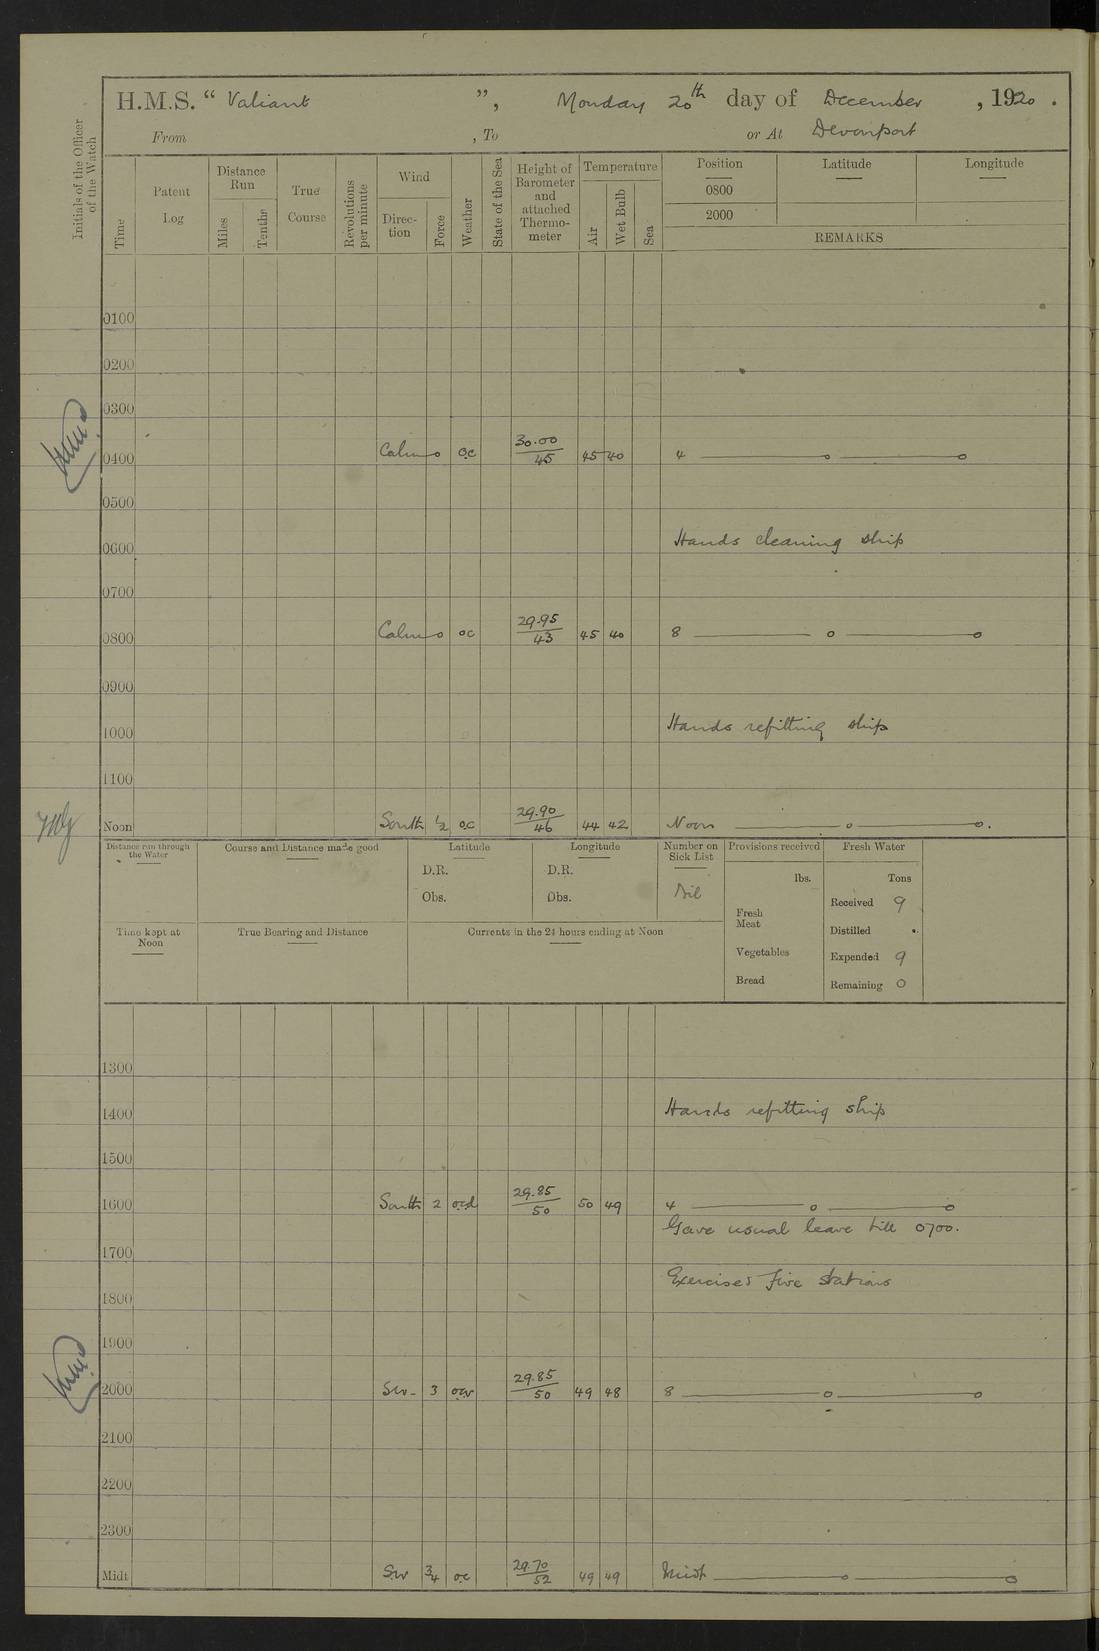 H.M.S. “ Valiant ”, Monday 20th day of December , 1920 .
From , To or At Devonport
Initials of the Officer of the Watch
Time
Patent Log
Distance Run
Miles
Tenths
True Course
Revolutions per minute
Wind
Direc-tion
Force
Weather
State of the Sea
Height of Barometer and attached Thermo-meter
Temperature
Air
Wet Bulb
Sea
Position Latitude Longitude
0800
2000
REMARKS
0100
0200
0300
0400 Calm o oc 30.00/45 45 40 4 ——o——o
0500
0600 Hands cleaning ship
0700
0800 Calm o oc 29.95/43 45 40 8 ——o——o
0900
1000 Hands refitting ship
1100
Noon South ½ oc 29.90/46 44 42 Noon ——o——o.
Distance run through the Water
Course and Distance made good
Latitude
D.R.
Obs.
Longitude
D.R.
Obs.
Number on Sick List
Nil
Provisions received
lbs.
Fresh Meat
Vegetables
Bread
Fresh Water
Tons
Received 9
Distilled .
Expended 9
Remaining 0
Time kept at Noon
True Bearing and Distance
Currents in the 24 hours ending at Noon
1300
1400 Hands refitting ship
1500
1600 South 2 ocd 29.85/50 50 49 4 ——o——o
Gave usual leave till 0700.
1700
Exercised Fire stations
1800
1900
2000 SW- 3 29.85/50 49 48 8 ——o——o
2100
2200
2300
Midt SW 3/4 oc 29.70/52 49 49 Midt ——o——o